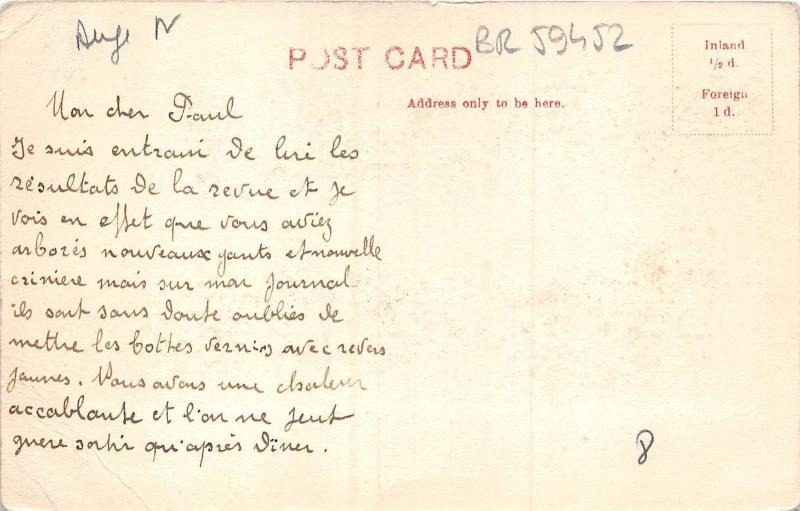 POST CARD
BR 59452
Inland
½ d.
Foreign
1 d.
Address only to be here.
Mon cher Paul
Je suis entrain de lire les
résultats de la revue et je
vois en effet que vous aviez
arborés nouveaux gants et nouvelle
criniere mais sur mon journal
ils sont sans doute oubliés de
mettre les bottes vernis avec revers
jaunes. Nous avons une chaleur
accablante et l'on ne peut
guere sortir qu'après dîner.
8